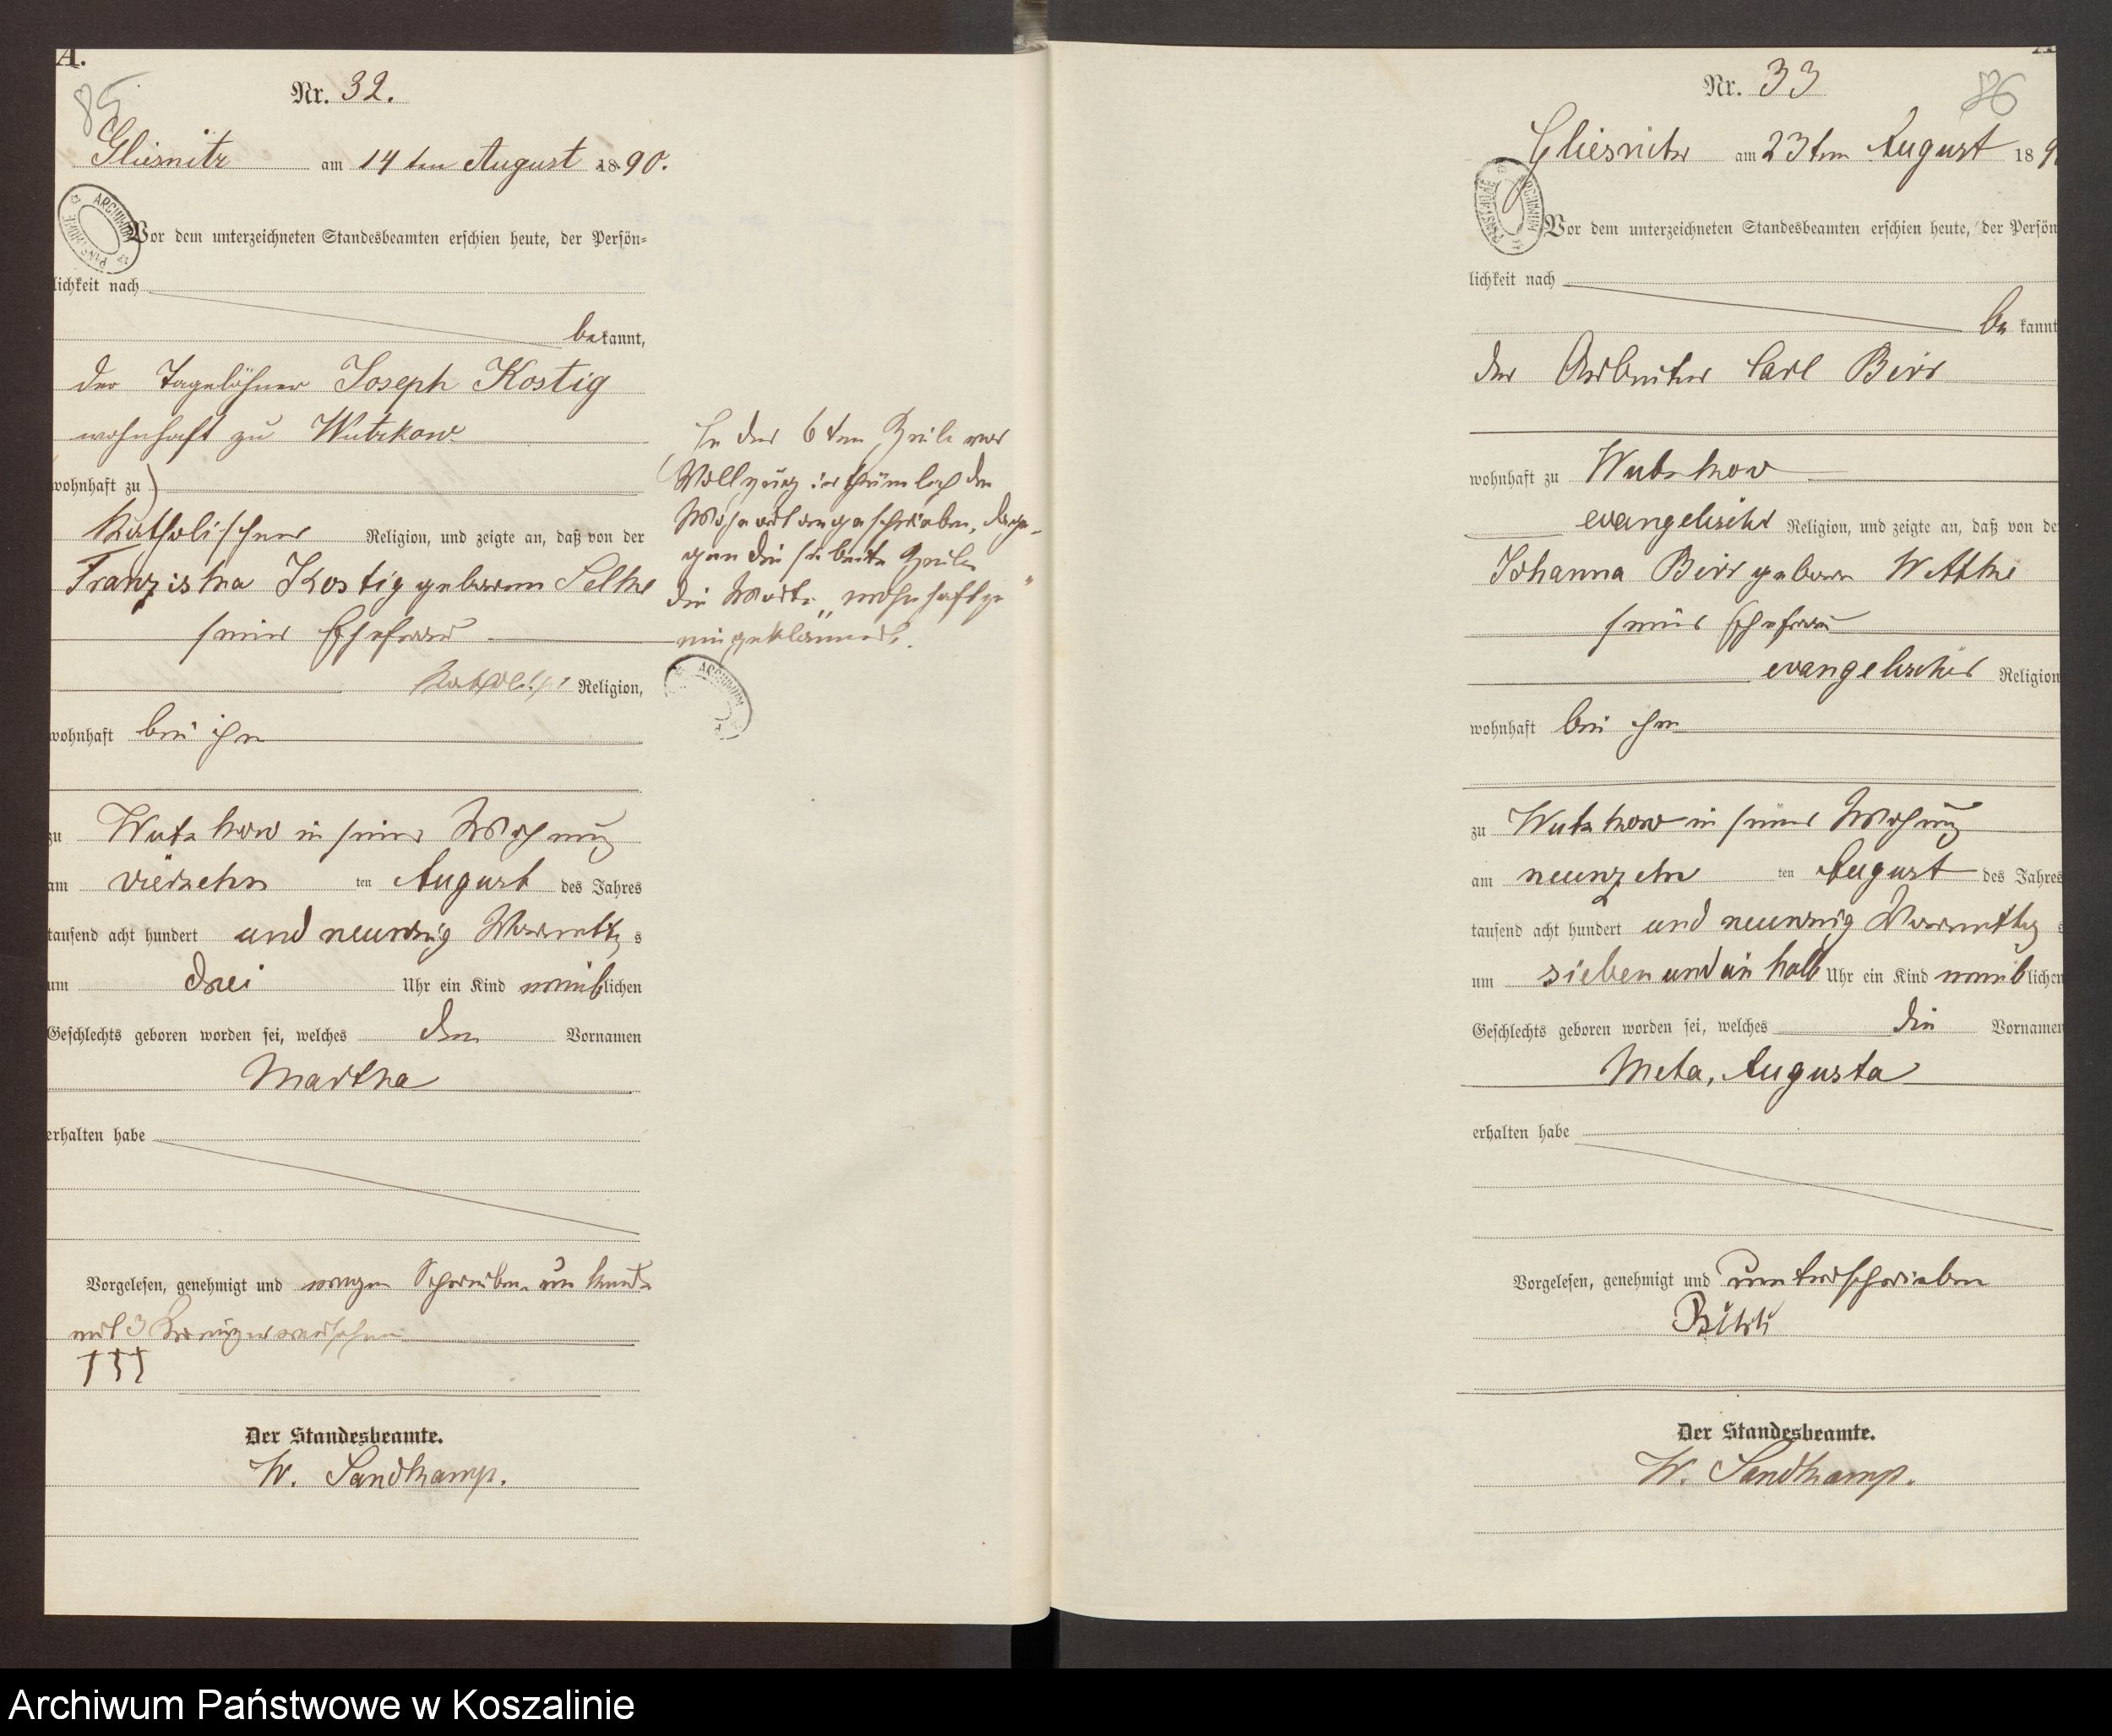 A.
85
Nr. 32.
Gliesnitz am 14ten August 1890.
Vor dem unterzeichneten Standesbeamten erschien heute, der Persön-
lichkeit nach
bekannt,
der Tagelöhner Joseph Kostig
wohnhaft zu Wutzkow
wohnhaft zu)
katholischer Religion, und zeigte an, daß von der
Franziska Kostig geborenen Selke
seiner Ehefrau
katholischer Religion,
wohnhaft bei ihm
zu Wutzkow in seiner Wohnung
am vierzehn ten August des Jahres
tausend acht hundert und neunzig Vormittags
um drei Uhr ein Kind weiblichen
Geschlechts geboren worden sei, welches den Vornamen
Martha
erhalten habe
Vorgelesen, genehmigt und wegen Schreibenunkunde
mit 3 Kreuzen versehen
†††
Der Standesbeamte.
W. Sandkamp.
In der 6ten Zeile vor
Vollzug irrthümlich den
Wohnort angeschrieben, dage-
gen die siebente Zeile
die Worte „wohnhaft zu"
eingeklammert.
Nr. 33
86
Gliesnitz am 23ten August 189
Vor dem unterzeichneten Standesbeamten erschien heute, der Persön
lichkeit nach
bekannt
der Arbeiter Carl Birr
wohnhaft zu Wutzkow
evangelischer Religion, und zeigte an, daß von de
Johanna Birr geboren Witthe
seiner Ehefrau
evangelischer Religion
wohnhaft bei ihm
zu Wutzkow in seiner Wohnung
am neunzehn ten August des Jahres
tausend acht hundert und neunzig Vormittags
um sieben und ein halb Uhr ein Kind weiblichen
Geschlechts geboren worden sei, welches die Vornamen
Meta, Augusta
erhalten habe
Vorgelesen, genehmigt und unterschrieben
Der Standesbeamte.
W. Sandkamp.
Archiwum Państwowe w Koszalinie